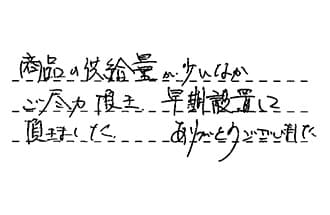 商品の供給量が少いなか
ご尽力頂き、早期設置して
頂きました。ありがとうございました